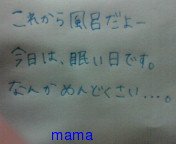 これから風呂だよー
今日は、眠い日です。
なんかめんどくさい…。
mama